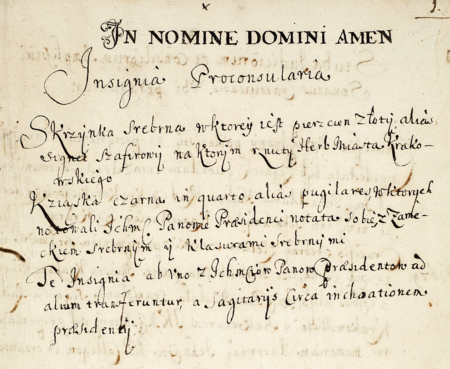 1.
IN NOMINE DOMINI AMEN
Insignia Proconsularia
Skrzynka Srebrna w ktorey iest pierzcien złoty aliás
signet szafirowy na ktorym rznięty Herb Miasta Krako-
wskiego
Xziąszka czarna in quarto alias pugilares w ktorych
notowali Ichmć Panowie Præsidenci notata sobie z zame-
ckiem srebrnym y klasurami srebrnymi
Te Insignia ab uno z Ichmciow Panow Præsidentow ad
alium transferuntur a Sagittarijs circa inchoationem
præsidentij